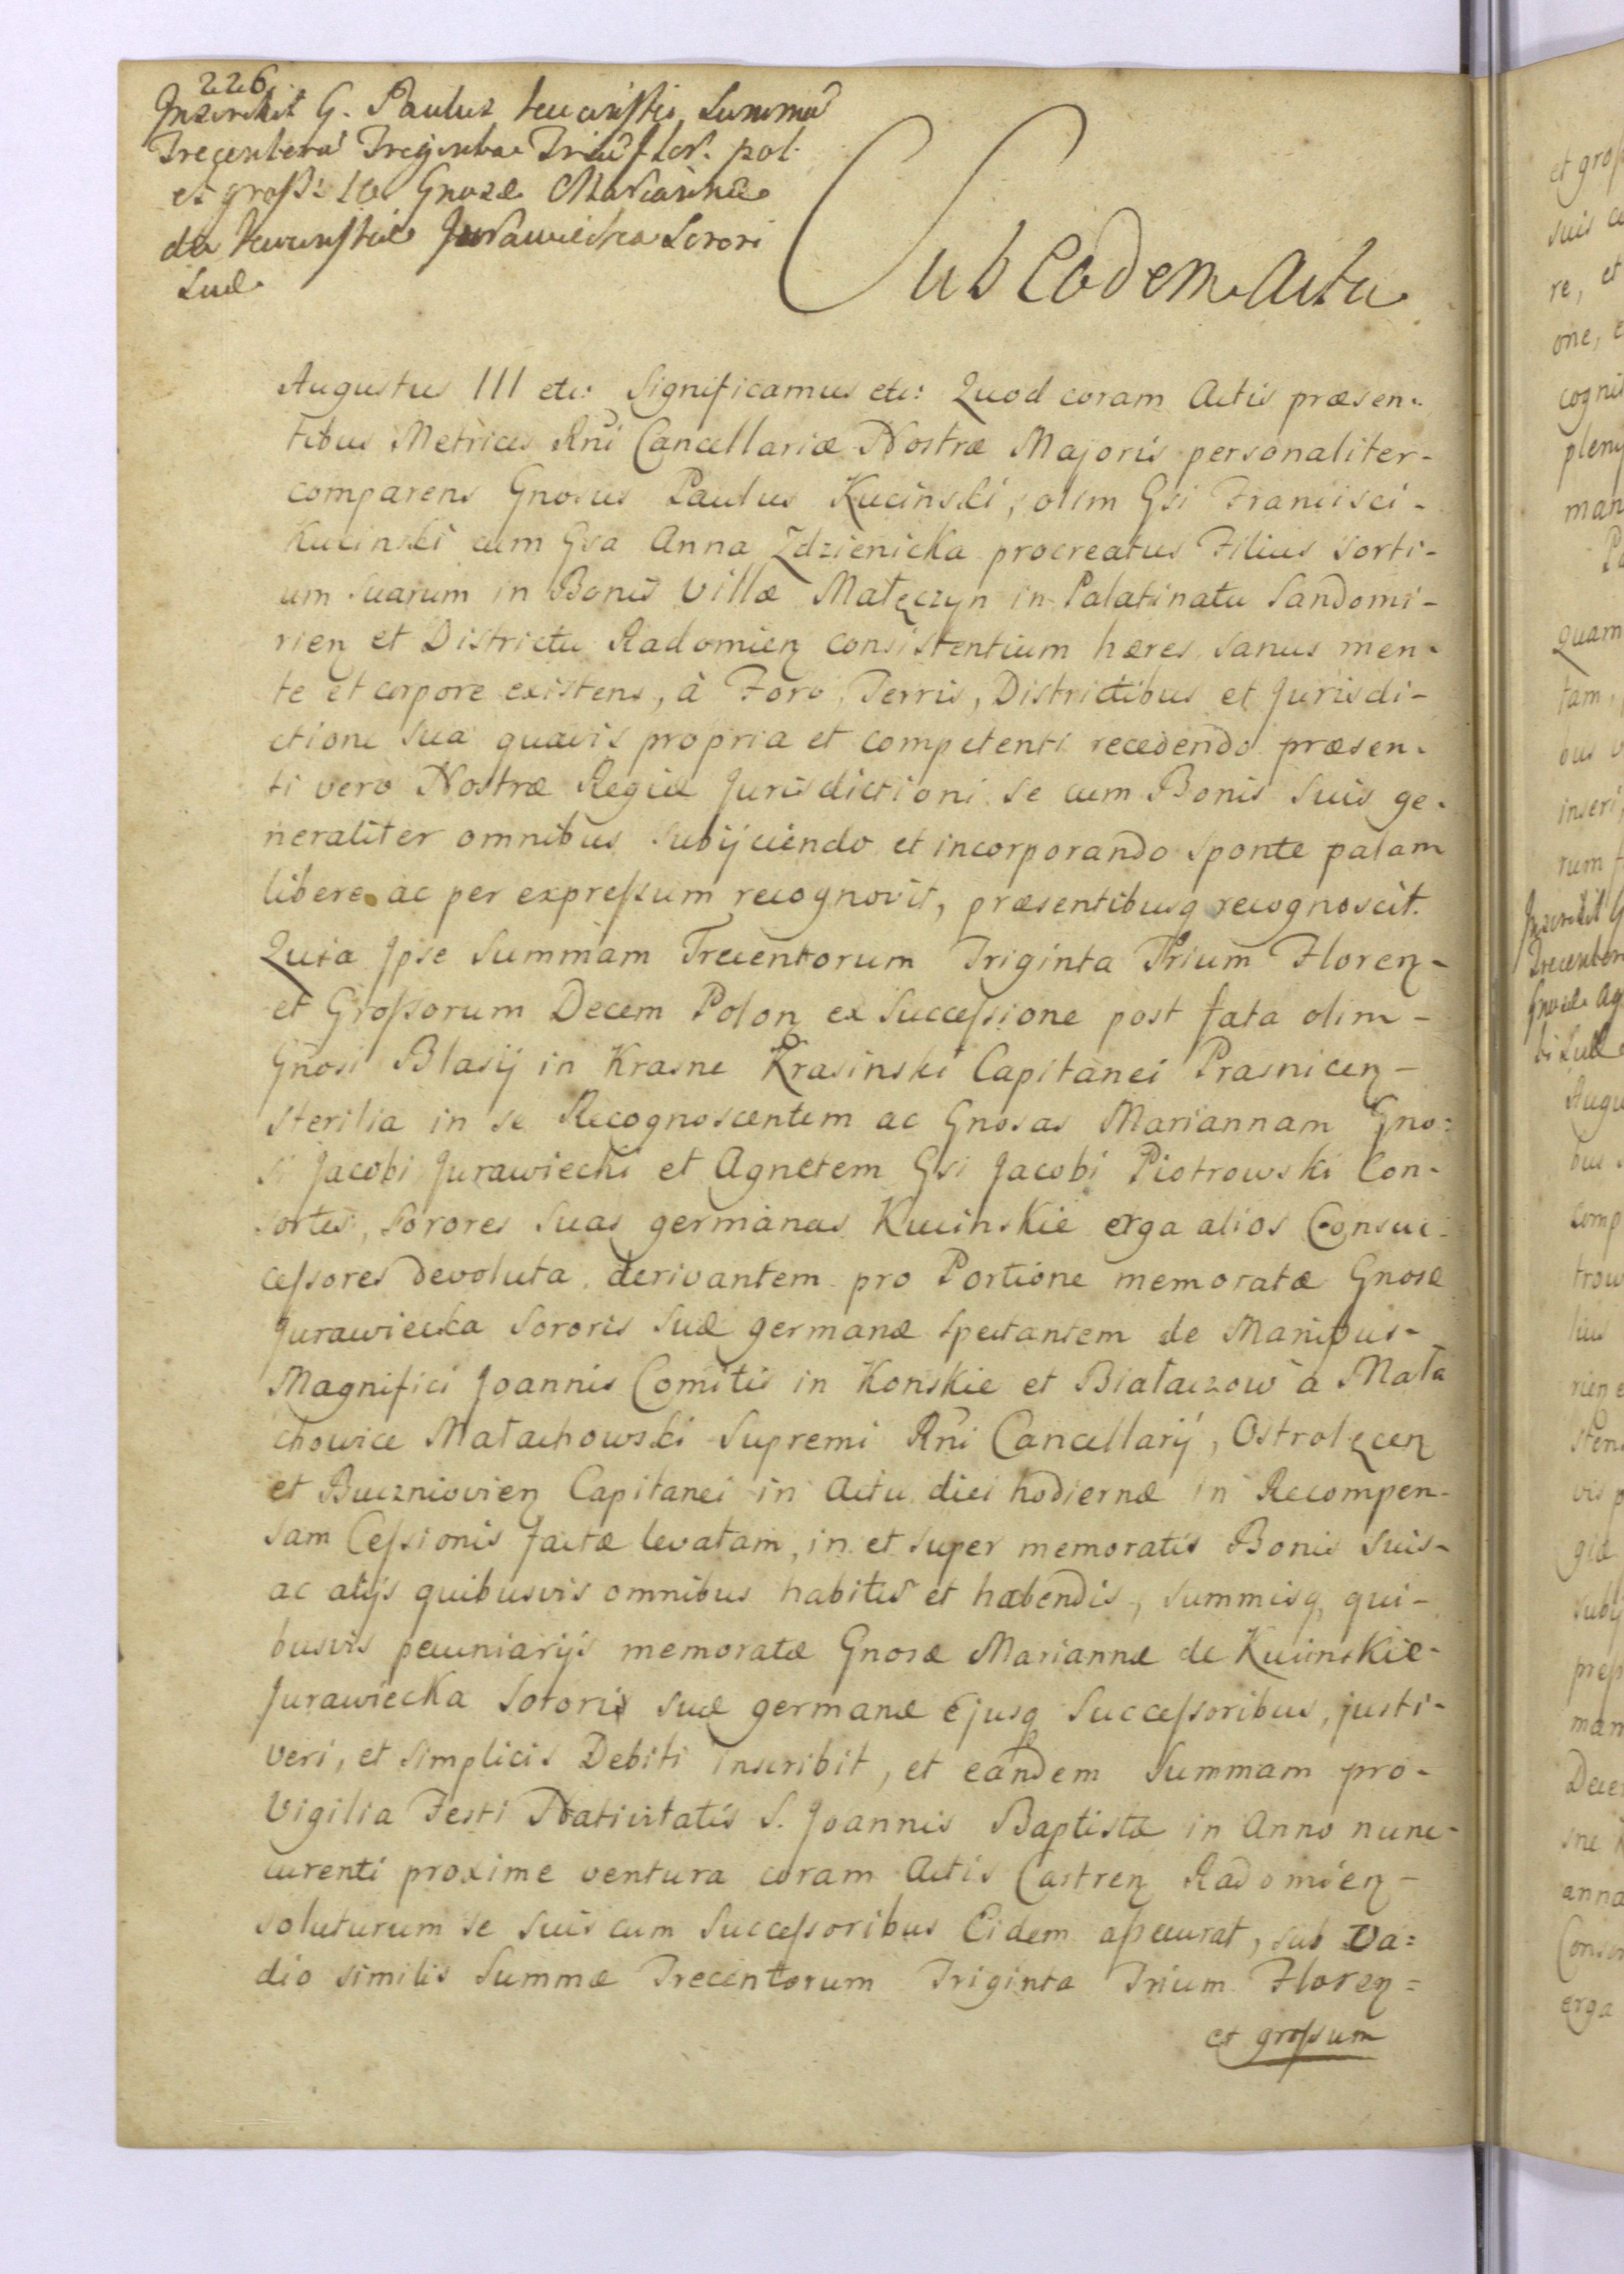 226.
Inscribit G. Paulus Kucinski Summã
Trecentorũ Triginta Triũ flor. pol.
et gross: 10 Gnosæ Mariannæ
de Kucinskie Jurawiecka Sorori
Suæ
Sub eodem Actu
Augustus III etc: Significamus etc: Quod coram Actis præsen-
tibus Metrices Rni Cancellariæ Nostræ Majoris personaliter-
comparens Gnosus Paulus Kucinski, olim Gsi Francisci-
Kucinski cum Gsa Anna Zdzienicka procreatus Filius sorti-
um suarum in Bonis Villæ Małęczyn in Palatinatu Sandomi-
rien et Districtu Radomien consistentium hæres sanus men-
te et corpore existens, à Foro, Terris, Districtibus et Jurisdi-
ctione sua quavis propria et competenti recedendo præsen-
ti vero Nostræ Regiæ Jurisdictioni se cum Bonis suis ge-
neraliter omnibus subijciendo et incorporando sponte palam
libere ac per expressum recognovit, præsentibusq recognoscit.
Quia Ipse Summam Trecentorum Triginta Trium Floren-
et Grossorum Decem Polon ex Successione post fata olim-
Gnosi Blasij in Krasne Krasinski Capitanei Prasnicen-
sterilia in se Recognoscentem ac Gnosas Mariannam Gno:
si Jacobi Jurawiecki et Agnetem Gsi Jacobi Piotrowski Con-
sortes, Sorores suas germanas Kucinskie erga alios Consuc-
cessores devoluta derivantem pro Portione memoratæ Gnosæ
Jurawiecka Sororis suæ germanæ spectantem de Manibus-
Magnifici Joannis Comitis in Konskie et Białaczow à Mała
chowice Małachowski Supremi Rni Cancellarij, Ostrolęcen
et Buczniovien Capitanei in Actu diei hodiernæ in Recompen-
sam Cessionis factæ levatam, in et super memoratis Bonis suis-
ac alijs quibusvis omnibus habitis et habendis, summisq qui-
busvis pecuniarijs memoratæ Gnosæ Mariannæ de Kucinskie-
Jurawiecka Sororis suæ germanæ Ejusq Successoribus, justi-
veri, et simplicis Debiti inscribit, et eandem Summam pro-
Vigilia Festi Nativitatis S. Joannis Baptistæ in Anno nunc-
curenti proxime ventura coram Actis Castren Radomien-
soluturum se suis cum Successoribus Eidem assecurat, sub Va=
dio similis Summæ Trecentorum Triginta Trium Floren=
et grossum